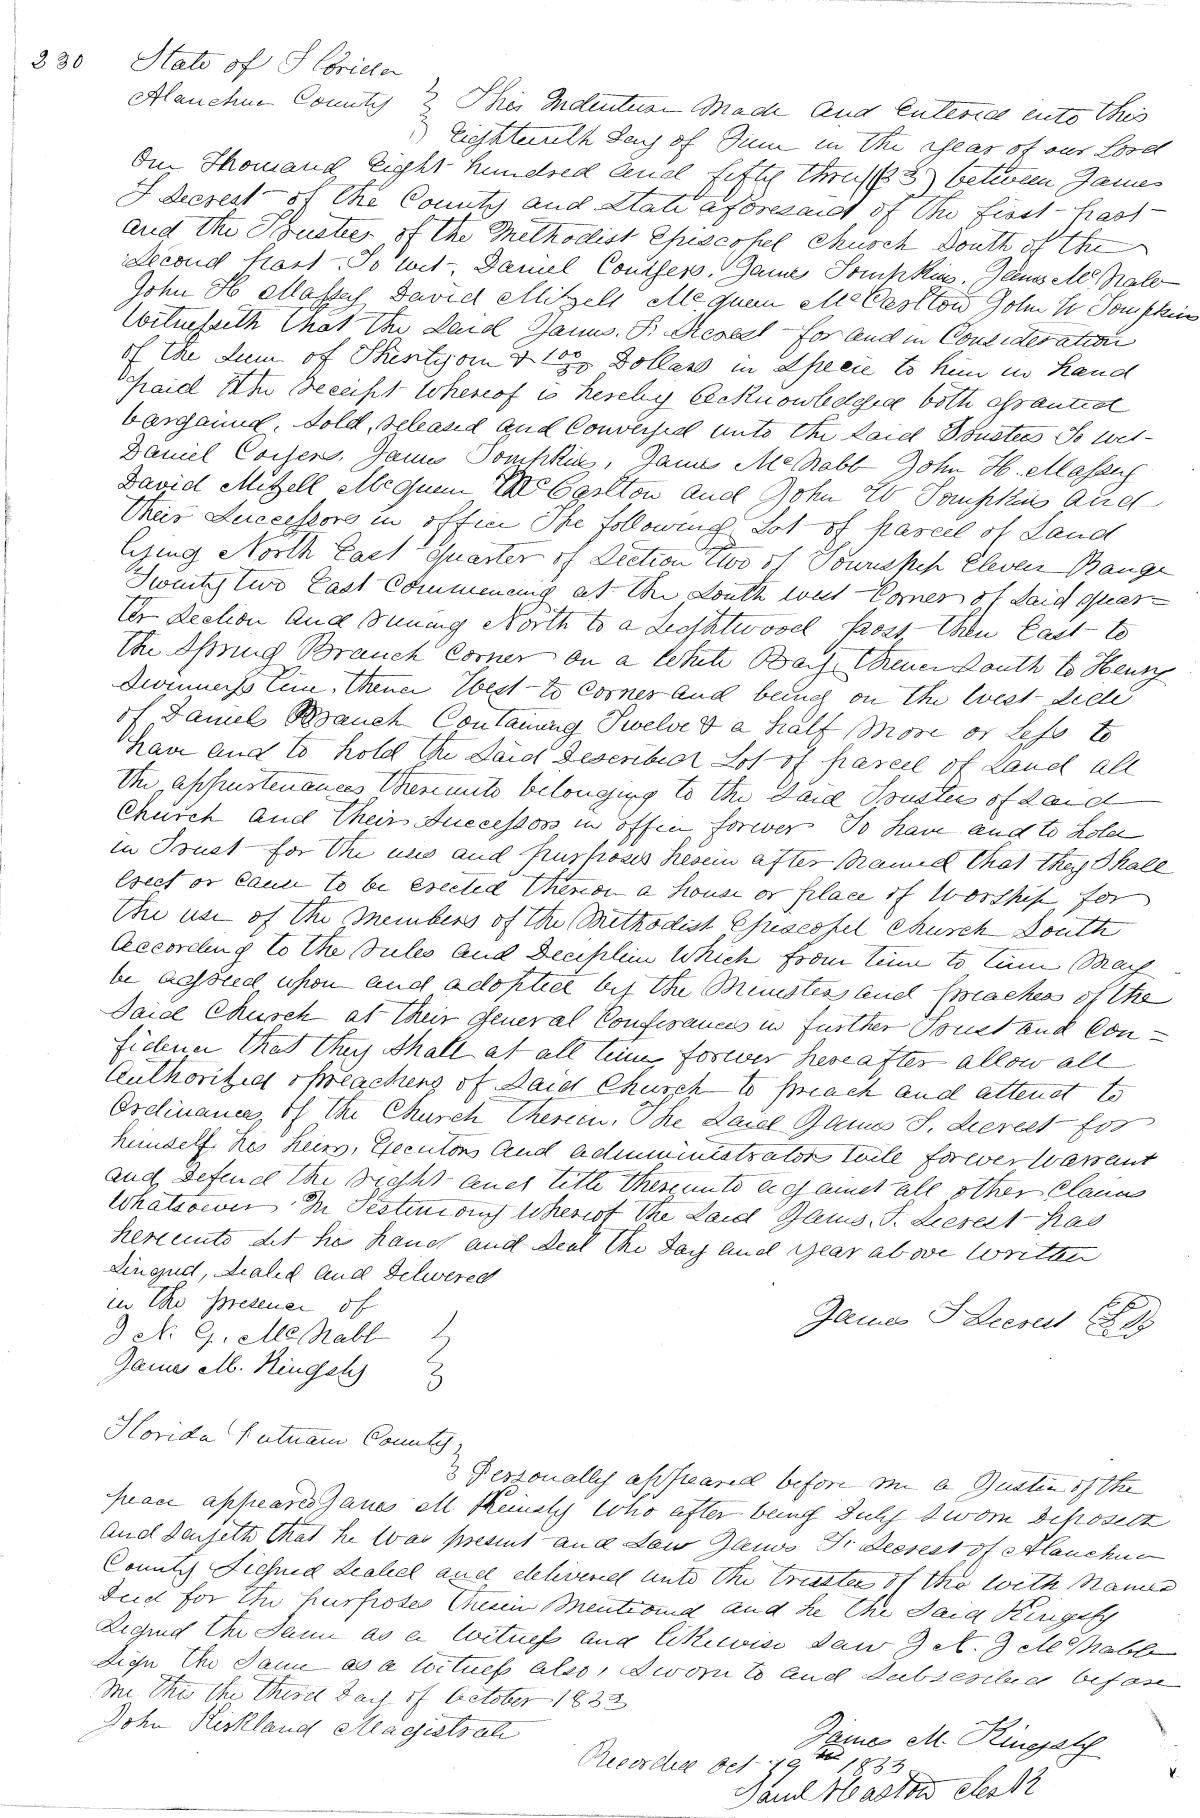 230
State of Florida
Alanchua County } This Indenture Made and Entered into this
Eighteenth Day of June in the year of our Lord
One Thousand Eight hundred and fifty three (53) between James
T Secrest of the County and State aforesaid of the first part
and the Trustees of the Methodist Episcopel Church South of the
Second part. To wit. Daniel Conyers. James Tompkins. James McNabb
John H Massey David Mitzell Mcquen McCarlton John W Tompkins
Witnesseth that the Said James. T. Secrest for and in Consideration
of the Sum of Thirtyone & 100/00 Dollars in Specie to him in hand
paid the receipt whereof is hereby acknowledged both granted
bargained, sold, released and Conveyed unto the said Trustees To wit
Daniel Coyers. James Tompkins, James McNabb John H. Massey
David Mitzell Mcquen McCarlton and John W Tompkins and
their Successors in office The following Lot of parcel of Land
lying North East quarter of Section two of Township Eleven Range
Twenty two East Commencing at the South west Corner of Said quar=
ter Section and runing North to a Lightwood post, then East to
the Spring Branch Corner on a White Bay, thence South to Henry
Swinneys line. thence West to corner and being on the West Side
of Daniels Branch Containing Twelve & a half More or Less to
have and to hold the Said Described Lot of parcel of Land all
the appurtenances thereunto belonging to the Said Trustees of Said
Church and their Successors in office forever To have and to hold
in Trust for the uses and purposes herein after Named that they Shall
Erect or cause to be erected thereon a house or place of Worship for
the use of the Members of the Methodist Episcopel Church South
According to the rules and Deciplin Which from time to time May
be agreed upon and adopted by the Ministers and preachers of the
Said Church at their General Conferances in further Trust and Con=
fidence that they Shall at all times forever hereafter allow all
Authorized preachers of Said Church to preach and attend to
Ordinances of the Church therein. The Said James T. Secrest for
himself his heirs, Executors and admministrators will forever Warrant
and Defend the right and title thereunto against all other Claims
Whatsoever In Testimony Whereof the Said James. T. Secrest has
hereunto Set his hand and Seal the Day and year above Written
Singned, Sealed and Delivered
in the presence of
J N. G. McNabb
James T Secrest
James M. Kingsly
Florida Putnam County
Personally appeared before me a Justice of the
peace appeared James M Kinsly Who after being Duly Sworn Deposeth
and Sayeth that he Was present and Saw James T. Secrest of Alanchua
County Signed Sealed and delivered unto the trustees of the with Named
Deed for the purposes therein Mentioned and he the Said Kingsly
Signed the Same as a Witness and likewise Saw J N. G McNabb
Sign the Same as a Witness also, Sworn to and Subscribed before
Me this the third Day of October 1853
John Kirkland Magistrate
James M. Kingsly
Recorded Oct 19th 1853
Saml Clerk